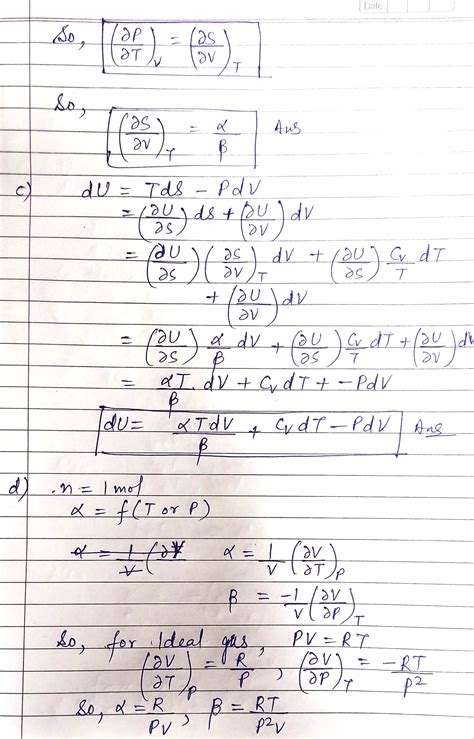 Date
So, (∂P/∂T)_V = (∂S/∂V)_T
So,
(∂S/∂V)_T = α/β Ans
c) dU = TdS - PdV
= (∂U/∂S) ds + (∂U/∂V) dV
= (∂U/∂S) (∂S/∂V)_T dV + (∂U/∂S) Cv/T dT
+ (∂U/∂V) dV
= (∂U/∂S) α/β dV + (∂U/∂S) Cv/T dT + (∂U/∂V) dV
= αT/β . dV + Cv dT + -PdV
dU = αTdV/β + CvdT - PdV Ans
d) .n = 1 mol
α = f(T or P)
α = 1/V (∂V α = 1/V (∂V/∂T)_P
β = -1/V (∂V/∂P)_T
So, for Ideal gas, PV = RT
(∂V/∂T)_P = R/P , (∂V/∂P)_T = -RT/P²
So, α = R/PV , β = RT/P²V